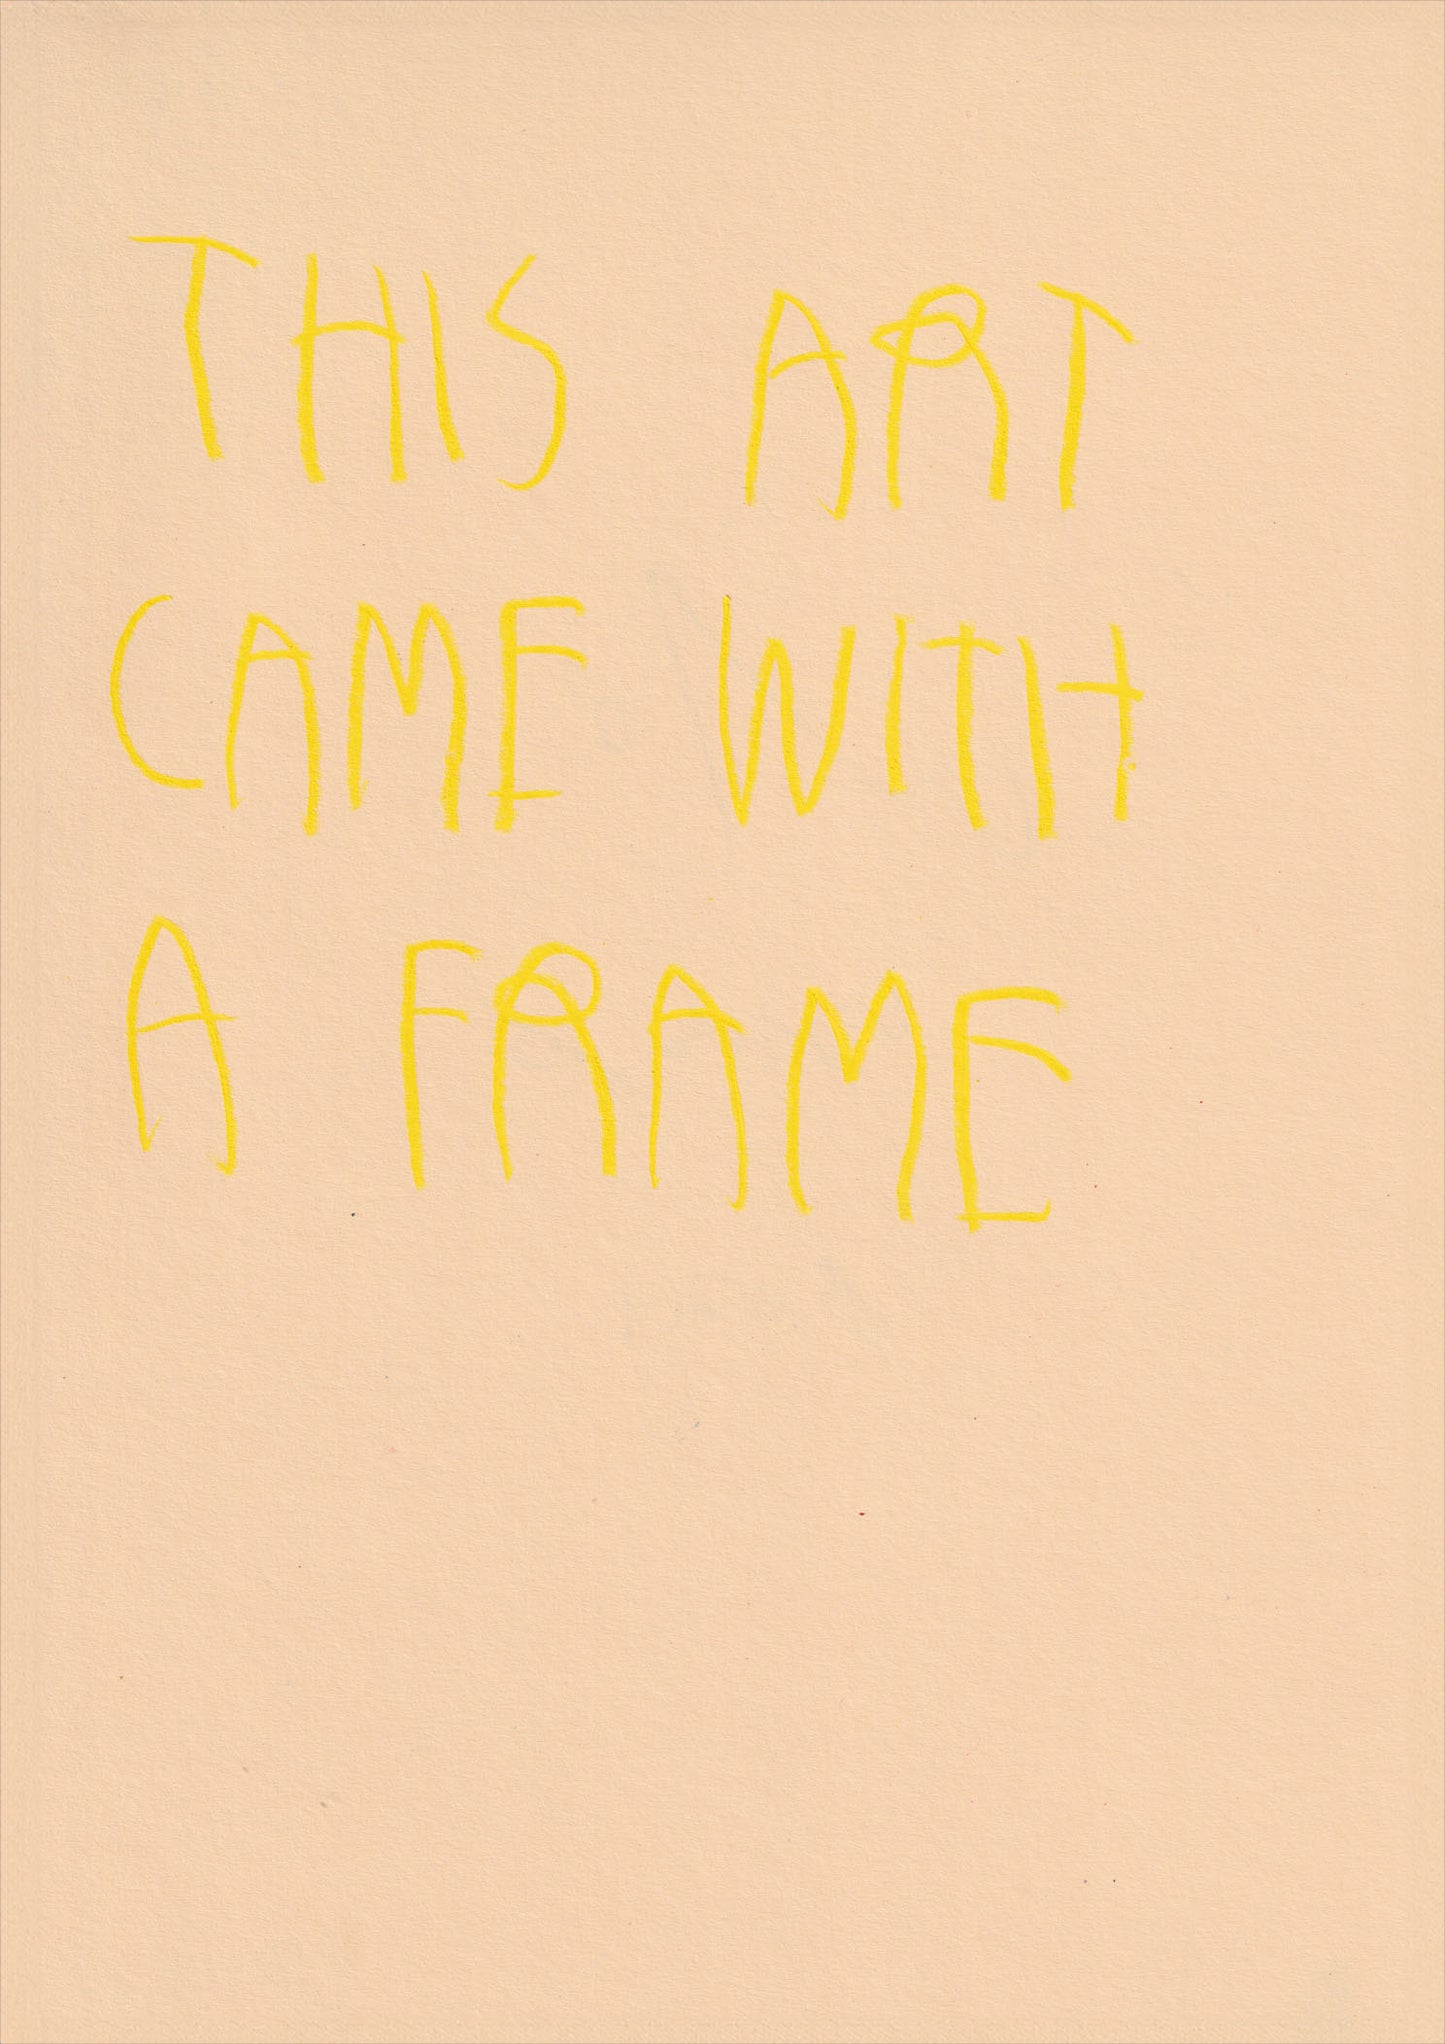 THIS ART
CAME WITH
A FRAME